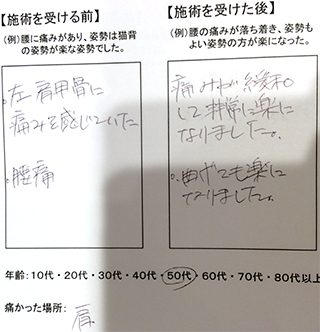 【施術を受ける前】
(例)腰に痛みがあり、姿勢は猫背
の姿勢が楽な姿勢でした。
。左肩甲骨に
痛みを感じていた
。腰痛
【施術を受けた後】
(例)腰の痛みが落ち着き、姿勢も
よい姿勢の方が楽になった。
痛みが緩和
して非常に楽に
なりました。
。曲げても楽に
なりました。
年齢:10代・20代・30代・40代・50代・60代・70代・80代以上
痛かった場所:
肩